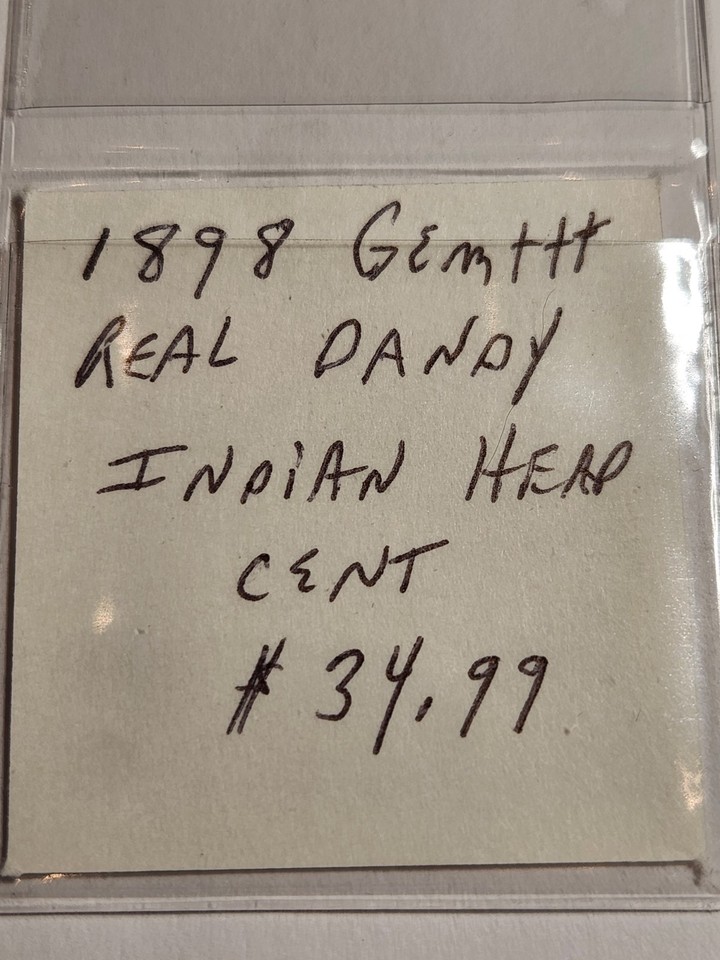 1898 Gem+++
REAL DANDY
INDiAN HEAD
CENT
$34.99